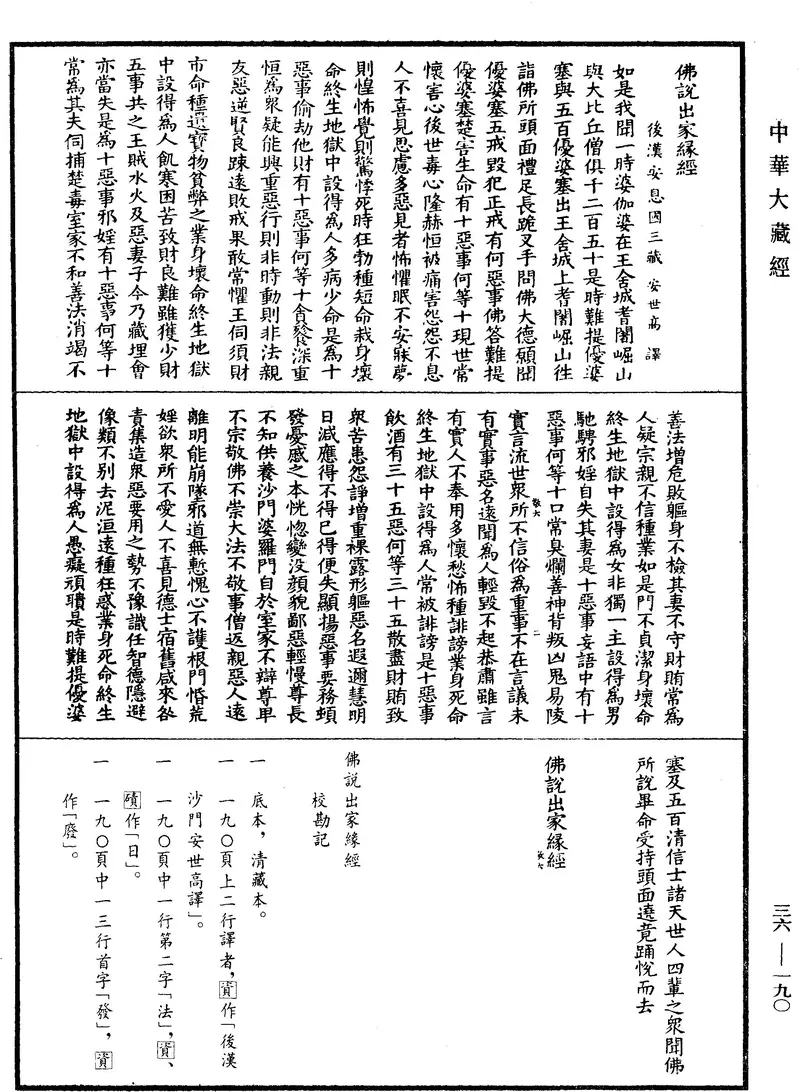 中華大藏經
佛說出家緣經
後漢安息國三藏安世高譯
如是我聞一時婆伽婆在王舍城耆闍崛山
與大比丘僧俱千二百五十是時難提優婆
塞與五百優婆塞出王舍城上耆闍崛山往
詣佛所頭面禮足長跪叉手問佛大德願聞
優婆塞五戒毀犯正戒有何惡事佛答難提
優婆塞楚害生命有十惡事何等十現世常
懷害心後世毒心隆赫恒被痛害怨怨不息
人不喜見思慮多惡見者怖懼眠不安寐夢
則惶怖覺則驚悸死時狂勃種短命栽身壞
命終生地獄中設得為人多病少命是為十
惡事偷劫他財有十惡事何等十貪餮深重
恒為眾疑能興重惡行則非時動則非法親
友惡逆賢良踈遠敗戒果敢常懼王伺須財
市命種遺寶物貧弊之業身壞命終生地獄
中設得為人飢寒困苦致財良難雖獲少財
五事共之王賊水火及惡妻子令乃藏埋會
亦當失是為十惡事邪婬有十惡事何等十
常為其夫伺捕楚毒室家不和善法消竭不
善法增危敗軀身不檢其妻不守財賄常為
人疑宗親不信種業如是門不貞潔身壞命
終生地獄中設得為女非獨一主設得為男
馳騁邪婬自失其妻是十惡事妄語中有十
惡事何等十口常臭爛善神背叛凶鬼易陵
實言流世眾所不信俗為重事不在言議未
有實事惡名遠聞為人輕毀不起恭肅雖言
有實人不奉用多懷愁怖種誹謗業身死命
終生地獄中設得為人常被誹謗是十惡事
飲酒有三十五惡何等三十五散盡財賄致
眾苦患怨諍增重裸露形軀惡名遐邇慧明
日減應得不得已得便失顯揚惡事要務頓
發憂慼之本恍惚變沒顏貌鄙惡輕慢尊長
不知供養沙門婆羅門自於室家不辯尊卑
不宗敬佛不崇大法不敬事僧返親惡人遠
離明能崩墜邪道無慙愧心不護根門惛荒
婬欲眾所不愛人不喜見德士宿舊咸來咎
責集造眾惡要用之勢不豫識任智德隱避
像類不別去泥洹遠種狂惑業身死命終生
地獄中設得為人愚癡頑聵是時難提優婆
塞及五百清信士諸天世人四輩之眾聞佛
所說畢命受持頭面遶竟踊悅而去
佛說出家緣經
佛說出家緣經
校勘記
一　底本，清藏本。
一　一九〇頁上二行譯者，資作「後漢
沙門安世高譯」。
一　一九〇頁中一行第二字「法」，資、
磧作「日」。
一　一九〇頁中一三行首字「發」，資
作「廢」。
三六—一九〇